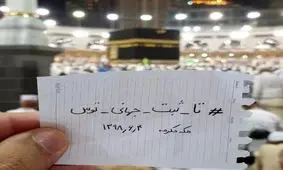 # تا_ثبت_جهانی_توس
مکه مکرمه ۱۳۹۸٫۶٫۴